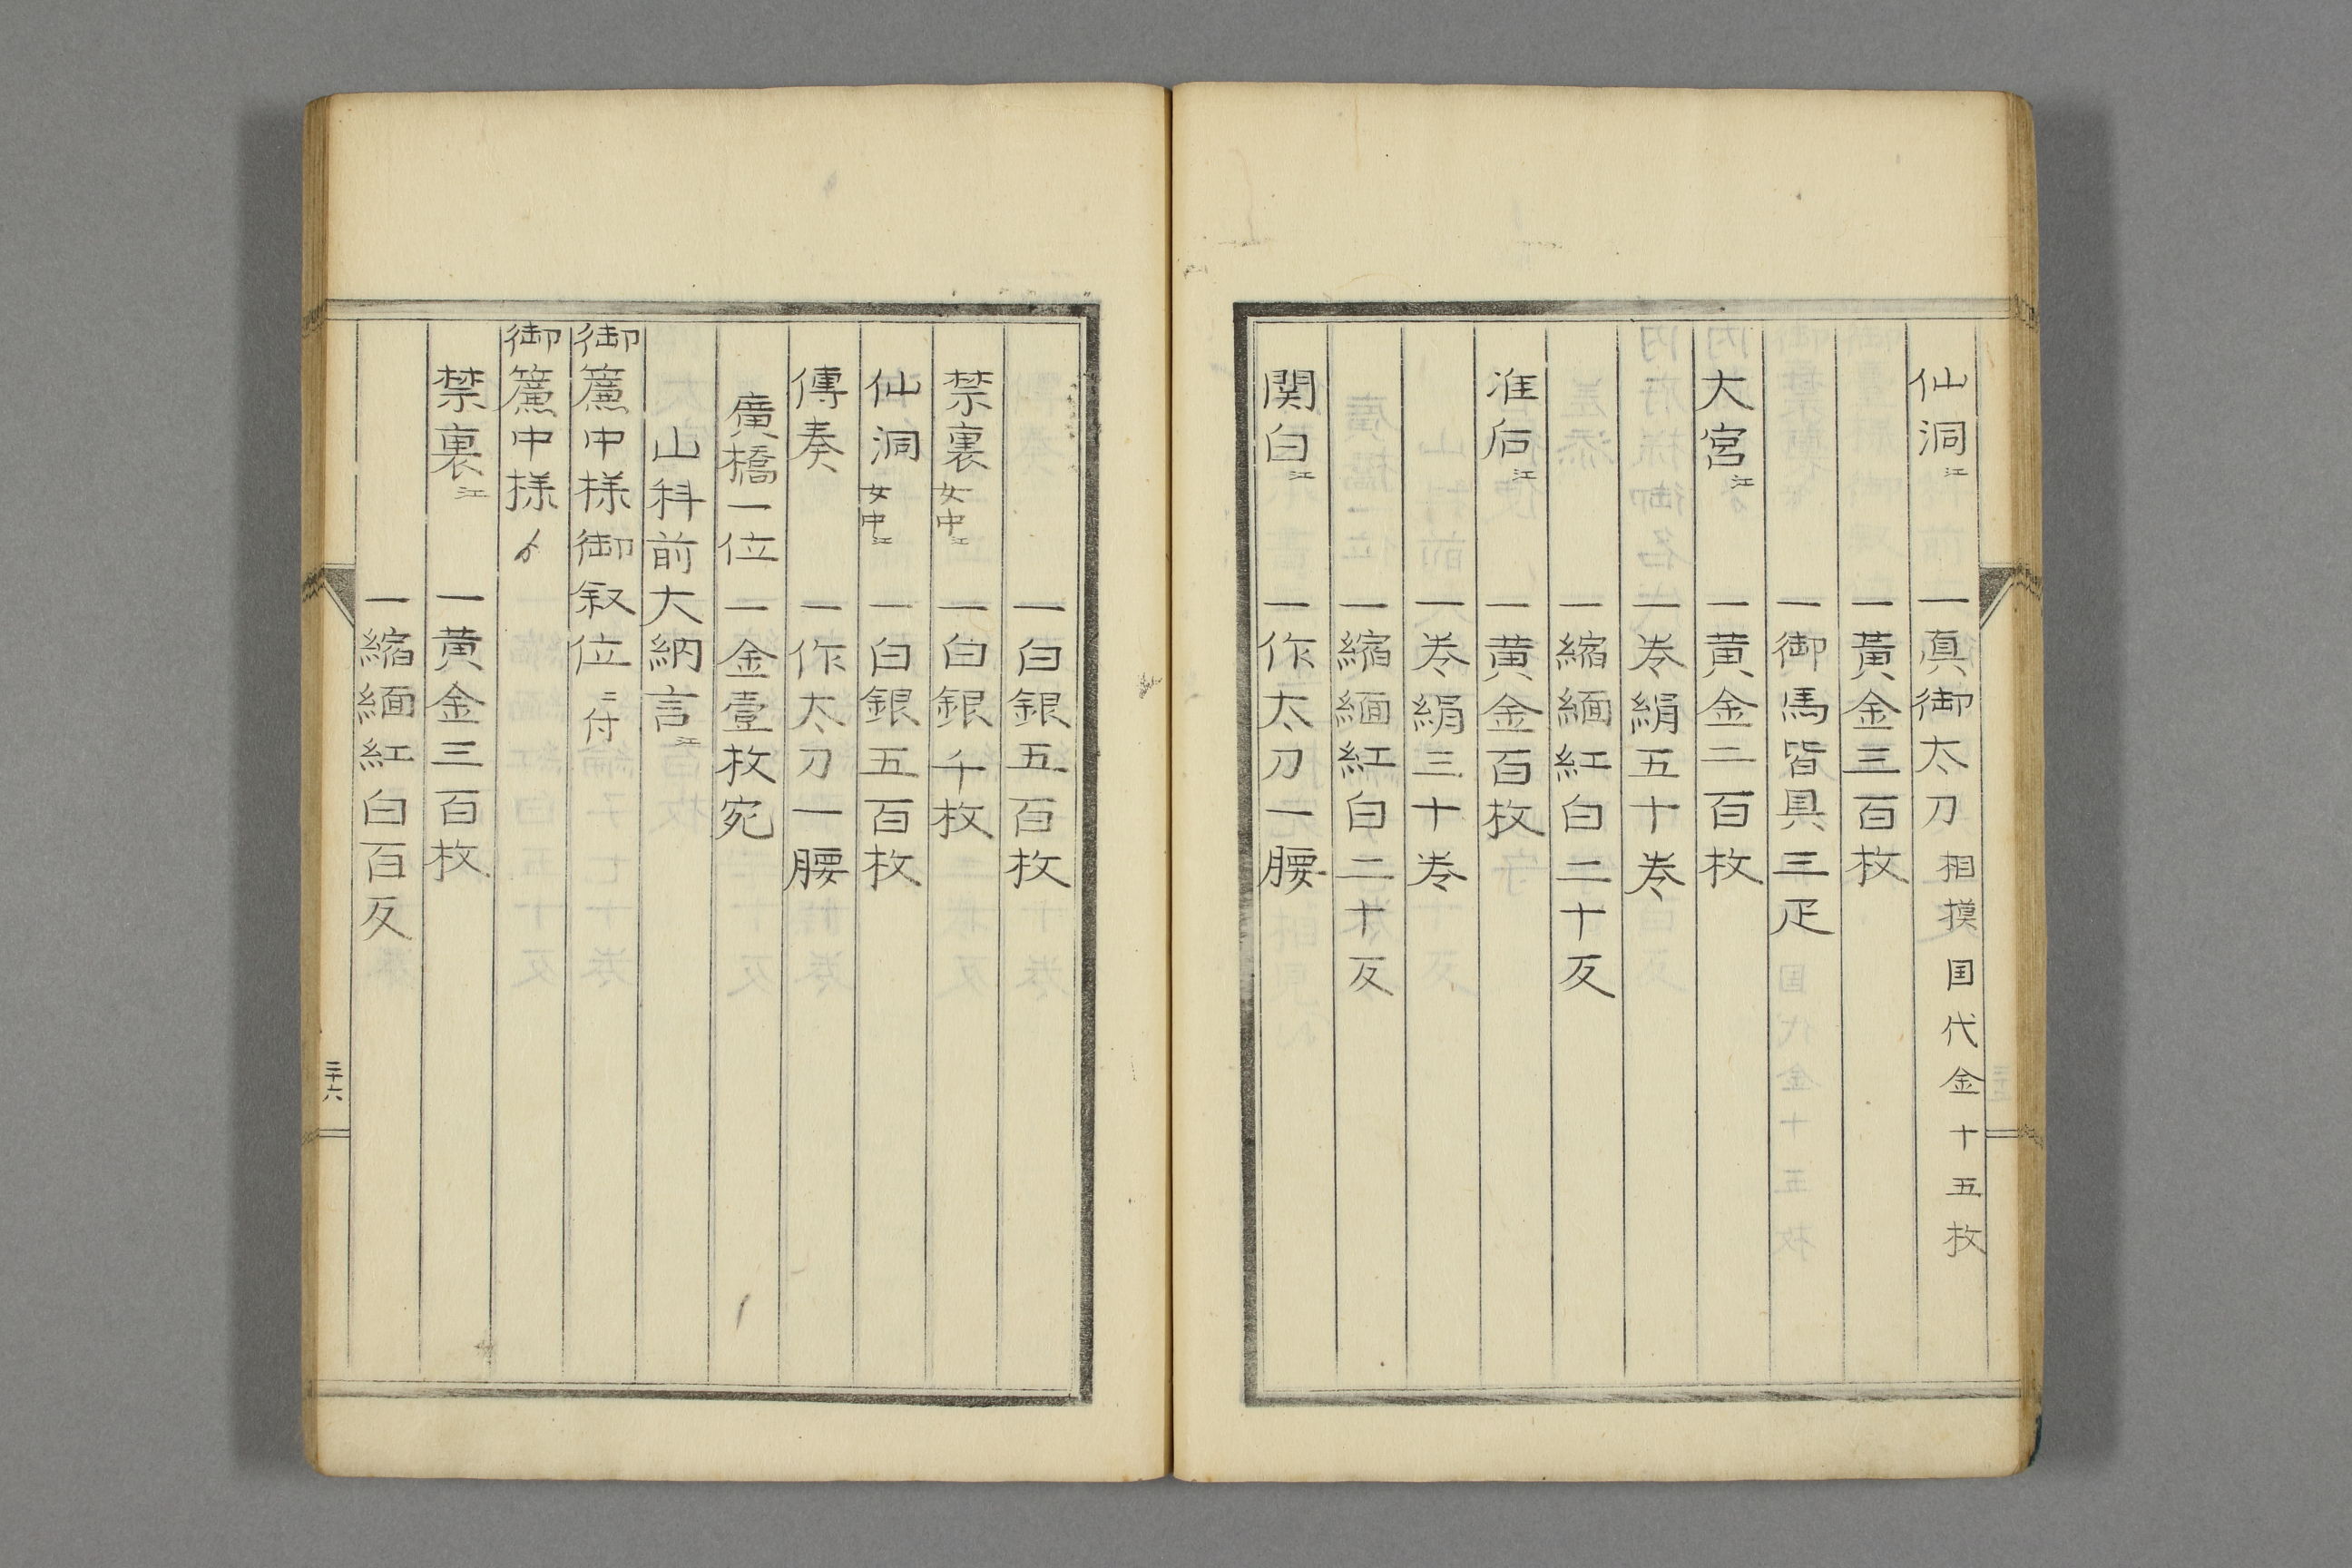 仙洞江 一真御太刀 相摸国代金十五枚
一黄金三百枚
一御馬皆具三疋
大宮江 一黄金二百枚
一巻絹五十巻
一縮緬紅白二十反
准后江 一黄金百枚
一巻絹三十巻
一縮緬紅白二十反
関白江 一作太刀一腰
一白銀五百枚
禁裏女中江 一白銀千枚
仙洞女中江 一白銀五百枚
傳奏 一作太刀一腰
廣橋一位 一金壹枚宛
山科前大納言江
御簾中様御叙位ニ付
御簾中様ゟ
禁裏江 一黄金三百枚
一縮緬紅白百反
三十六